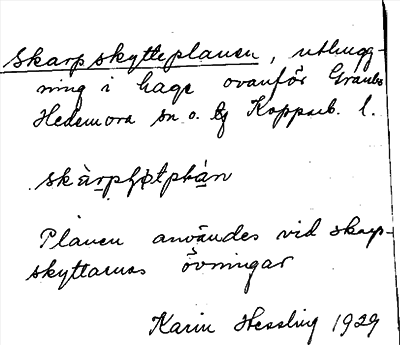 Skarpskytteplanen, uthugg-
ning i hage ovanför
Hedemora sn o. Kopparb. l.
Planen användes vid skarp-
skyttarnas övningar
Karin Hessling 1929